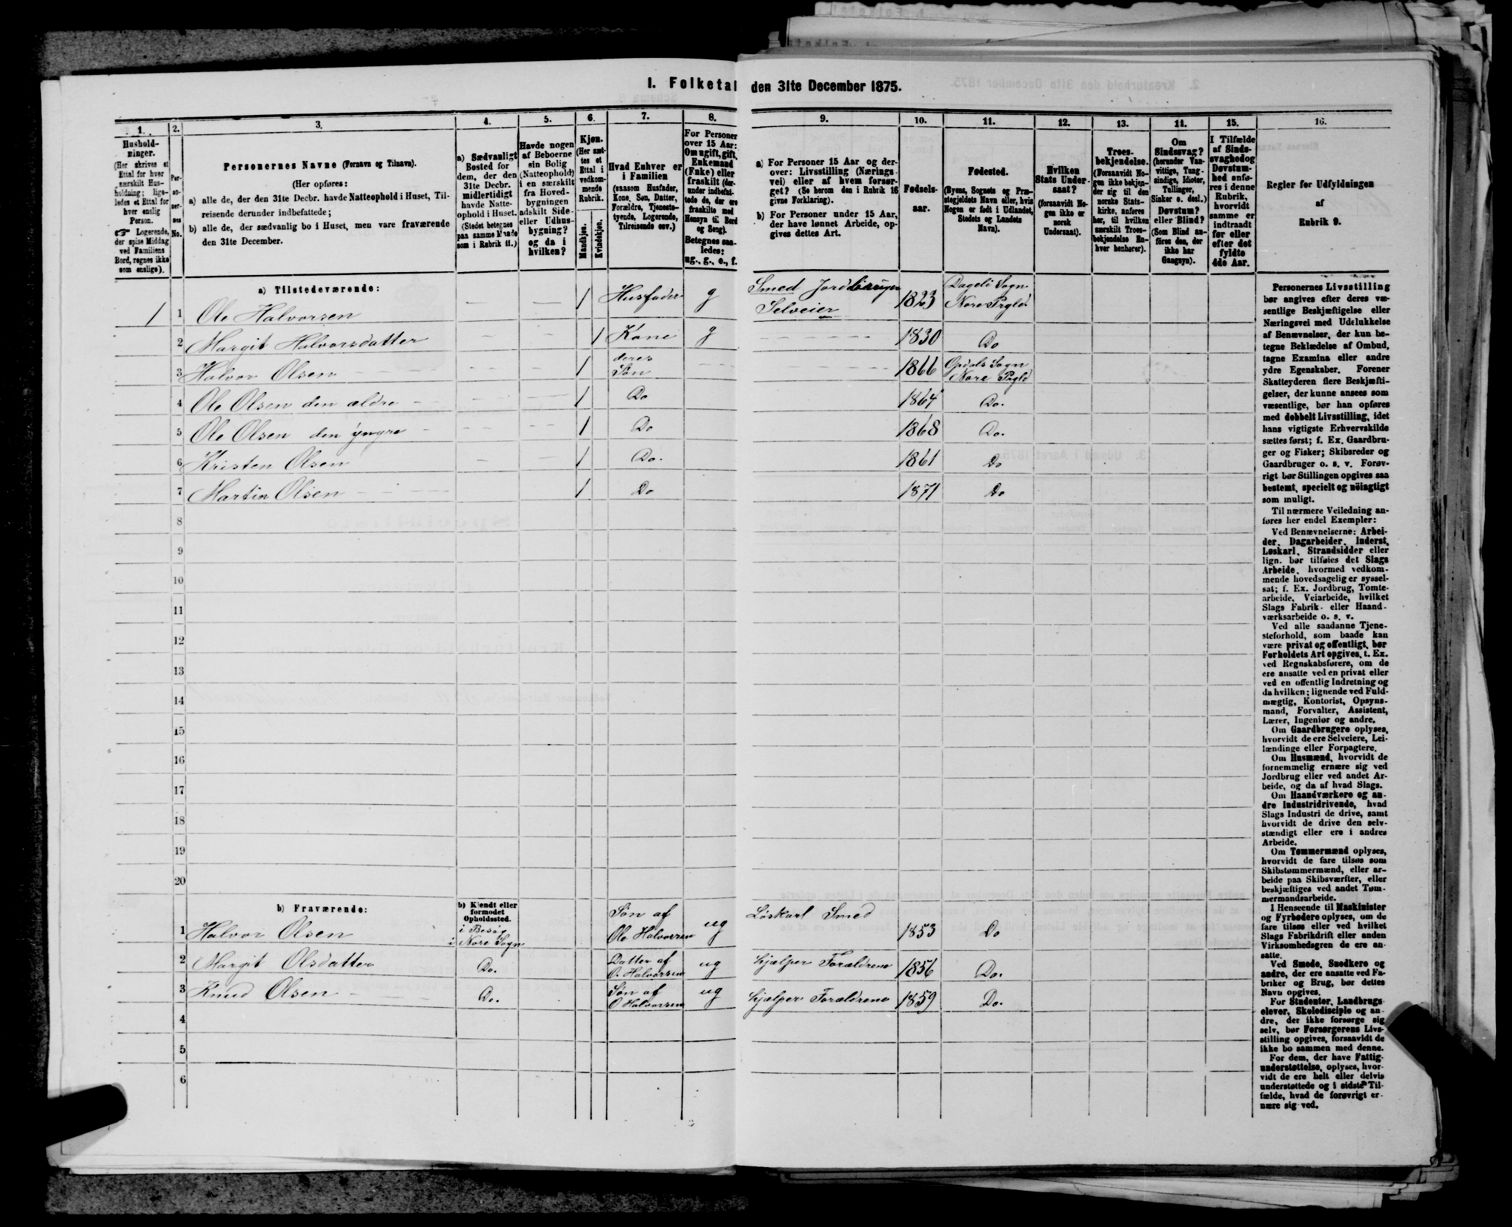 I. Folketal den 31te December 1875.
1. 2. 3. 4. 5. 6. 7. 8. 9. 10. 11. 12. 13. 14. 15. 16.
Hushold-
ninger.
(Her skrives et
Ettal for hver
særskilt Hus-
holdning; lige-
ledes et Ettal for
hver enslig
Person.
☞ Logerende,
der spise Middag
ved Familiens
Bord, regnes ikke
som enslige).
Per-
so-
ner-
nes
No.
Personernes Navne (Fornavn og Tilnavn).
(Her opføres:
a) alle de, der den 31te Decbr. havde Natteophold i Huset, Til-
reisende derunder indbefattede;
b) alle de, der sædvanlig bo i Huset, men vare fraværende
den 31te December.
a) Sædvanligt
Bosted for
dem, der den
31te Decbr.
midlertidigt
havde Natte-
ophold i Huset.
(Stedet betegnes
paa samme Maade
som i Rubrik 11.)
Havde nogen
af Beboerne
sin Bolig
(Natteophold)
i en særskilt
fra Hoved-
bygningen
adskilt Side-
eller Udhus-
bygning?
og da i
hvilken?
Kjøn.
(Her sæt-
tes et
Ettal i
vedkom-
mende
Rubrik.
Mandkjøn.
Kvindekjøn.
Hvad Enhver er
i Familien
(saasom Husfader,
Kone, Søn, Datter,
Forældre, Tjeneste-
tyende, Logerende,
Tilreisende osv.)
For Personer
over 15 Aar:
Om ugift, gift,
Enkemand
(Enke) eller
fraskilt (der-
under indbefat-
tede de, der ere
fraskilte med
Hensyn til Bord
og Seng).
Betegnes saa-
ledes:
ug., g., e., f.
a) For Personer 15 Aar og der-
over: Livsstilling (Nærings-
vei) eller af hvem forsør-
get? (Se herom den i Rubrik 16
givne Forklaring).
b) For Personer under 15 Aar,
der have lønnet Arbeide, op-
gives dettes Art.
Fødsels-
aar.
Fødested.
(Byens, Sognets og Præ-
stegjeldets Navn eller, hvis
Nogen er født i Udlandet,
Stedets og Landets
Navn).
Hvilken
Stats Under-
saat?
(forsaavidt No-
gen ikke er
norsk
Undersaat).
Troes-
bekjendelse.
(Forsaavidt No-
gen ikke bekjen-
der sig til den
norske Stats-
kirke, anføres
her, til hvilken
særskilt Troes-
bekjendelse En-
hver henhører).
Om
Sindssvag?
(herunder Van-
vittige, Tung-
sindige, Idioter,
Tullinger,
Sinker o. desl.)
Døvstum?
eller Blind?
(Som Blind an-
føres den, der
ikke har
Gangsyn).
I Tilfælde
af Sinds-
svaghed og
Døvstum-
hed anfø-
res i denne
Rubrik,
hvorvidt
samme er
indtraadt
før eller
efter det
fyldte
4de Aar.
Regler for Udfyldningen
af
Rubrik 9.
a) Tilstedeværende:
1 1 Ole Halvorsen 1 Husfader g Smed Jordbruger Selveier 1823 Dagali Sogn Nore Prgld
2 Margit Halvorsdatter 1 Kone g 1830 Do
3 Halvor Olsen 1 deres Søn 1866 Opdals Sogn Nore Prgld
4 Ole Olsen den ældre 1 Do 1864 Do.
5 Ole Olsen den yngre 1 Do 1868 Do.
6 Kristen Olsen 1 Do. 1861 Do
7 Martin Olsen 1 Do 1871 Do
8
9
10
11
12
13
14
15
16
17
18
19
20
b) Fraværende:
b) Kjendt eller
formodet
Opholdssted.
1 Halvor Olsen i Nore Sogn Søn af Ole Halvorsen ug Løskarl Smed 1853 Do
2 Margit Olsdatter Do. Datter af O. Halvorsen ug hjælper Forældrene 1856 Do.
3 Knud Olsen Do. Søn af O Halvorsen ug hjælper Forældrene 1859 Do.
4
5
6
Personernes Livsstilling
bør angives efter deres væ-
sentlige Beskjæftigelse eller
Næringsvei med Udelukkelse
af Benævnelser, der kun be-
tegne Beklædelse af Ombud,
tagne Examina eller andre
ydre Egenskaber. Forener
Skatteyderen flere Beskjæfti-
gelser, der kunne ansees som
væsentlige, bør han opføres
med dobbelt Livsstilling, idet
hans vigtigste Erhvervskilde
sættes først; f. Ex. Gaardbru-
ger og Fisker; Skibsreder og
Gaardbruger o. s. v. Forøv-
rigt bør Stillingen opgives saa
bestemt, specielt og nøiagtigt
som muligt.
Til nærmere Veiledning an-
føres her endel Exempler:
Ved Benævnelserne: Arbei-
der, Dagarbeider, Inderst,
Løskarl, Strandsidder eller
lign. bør tilføies det Slags
Arbeide, hvormed vedkom-
mende hovedsagelig er syssel-
sat; f. Ex. Jordbrug, Tomte-
arbeide, Veiarbeide, hvilket
Slags Fabrik- eller Haand-
værksarbeide o. s. v.
Ved alle saadanne Tjene-
steforhold, som baade kan
være privat og offentligt, bør
Forholdets Art opgives, t. Ex.
ved Regnskabsførere, om de
ere ansatte ved en privat eller
ved en offentlig Indretning og
da hvilken; lignende ved Fuld-
mægtig, Kontorist, Opsyns-
mand, Forvalter, Assistent,
Lærer, Ingeniør og andre.
Om Gaardbrugere oplyses,
hvorvidt de ere Selveiere, Lei-
lændinge eller Forpagtere.
Om Husmænd, hvorvidt de
fornemmelig ernære sig ved
Jordbrug eller ved andet Ar-
beide, og da af hvad Slags.
Om Haandværkere og an-
dre Industridrivende, hvad
Slags Industri de drive, samt
hvorvidt de drive den selv-
stændigt eller ere i andres
Arbeide.
Om Tømmermænd oplyses,
hvorvidt de fare tilsøs som
Skibstømmermænd, eller ar-
beide paa Skibsværfter, eller
beskjæftiges ved andet Tøm-
mermandsarbeide.
I Henseende til Maskinister
og Fyrbødere oplyses, om de
fare tilsøs eller ved hvilket
Slags Fabrikdrift eller anden
Virksombedsgren de ere an-
satte.
Ved Smede, Snedkere og
andre, der ere ansatte ved Fa-
briker og Brug, bør dettes
Navn opgives.
For Studenter, Landbrugs-
elever, Skoledisciple og an-
dre, der ikke forsørge sig
selv, bør Forsørgerens Livs-
stilling opgives, forsaavidt de
ikke bo sammen med denne.
For dem, der have Fattig-
understøttelse, oplyses, hvor-
vidt de ere helt eller delvis
understøttede og i sidste Til-
fælde, hvad de forøvrigt er-
nære sig ved.